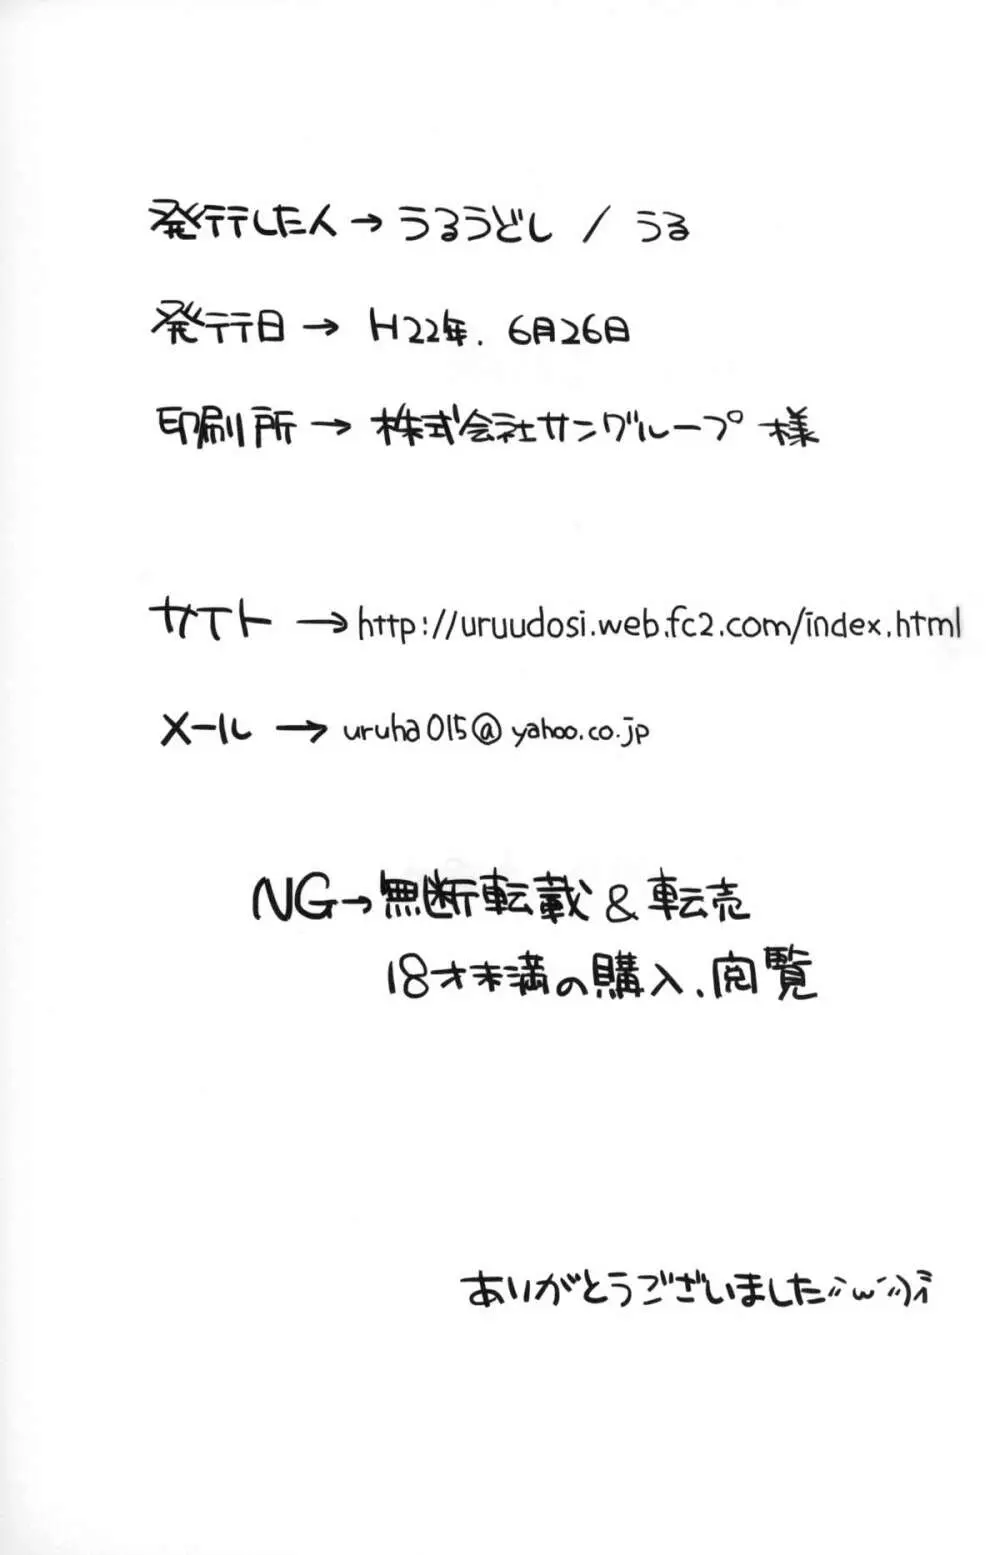 発行した人→うるうどし / うる
発行日→ H22年. 6月26日
印刷所→ 株式会社サングループ 様
サイト→http://uruudosi.web.fc2.com/index.html
メール→ uruha015@yahoo.co.jp
NG→無断転載&転売
18才未満の購入、閲覧
ありがとうございました